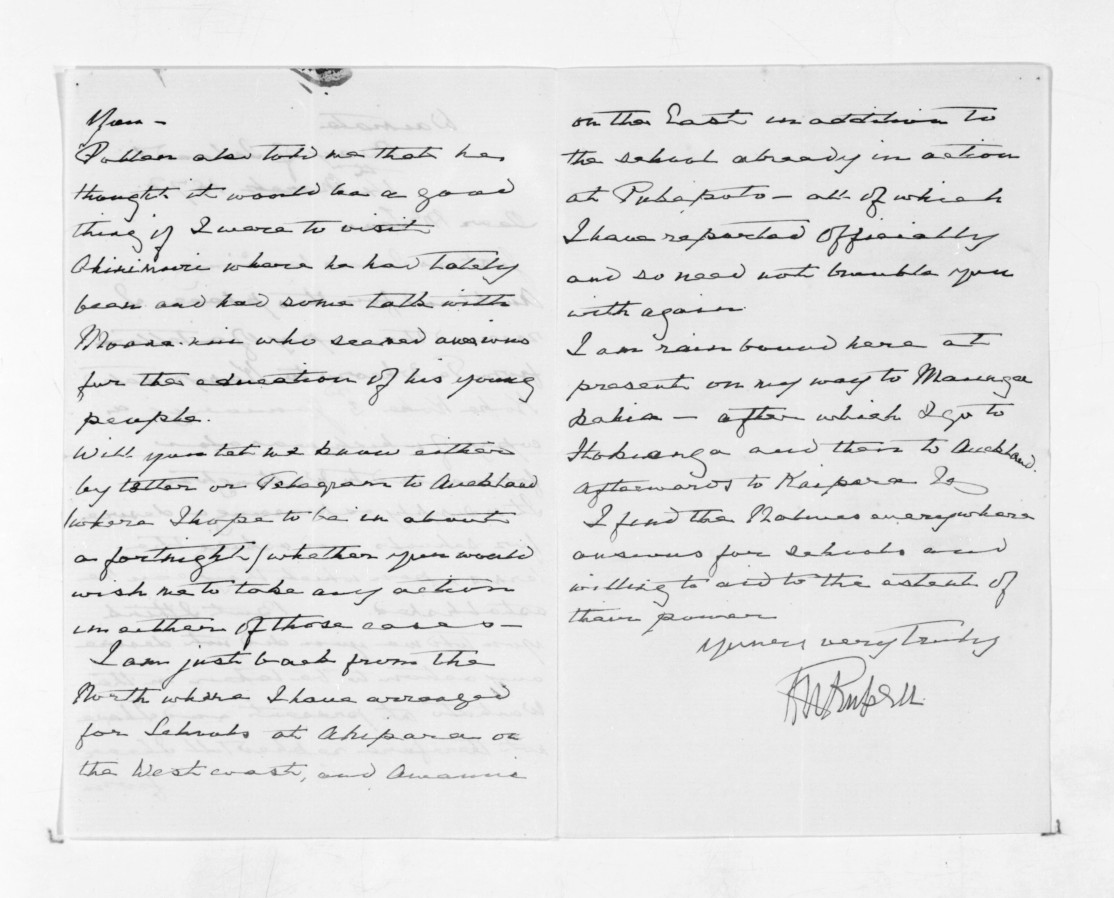 You -
Pollen also told me that he
thought it would be a good
thing if I were to visit
Ohinimuri where he had lately
been and had some talk with
who seemed anxious
for the education of his young
people.
Will you let me know either
by letter or Telegram to Auckland
(where I hope to be in about
a fortnight) whether you would
wish me to take any action
in either of those cases -
I am just back from the
North where I have arranged
for Schools at Ahipara on
the West coast, and Awanui
on the East in addition to
the school already in action
at Pukepoto - all of which
I have reported officially
and so need not trouble you
with again
I am rainbound here at
present on my way to Maunga
kahia - after which I go to
Hokianga and then to Auckland.
afterwards to Kaipara &c
I find the Natives everywhere
anxious for schools and
willing to aid to the extent of
their power
Yours very truly
Russell